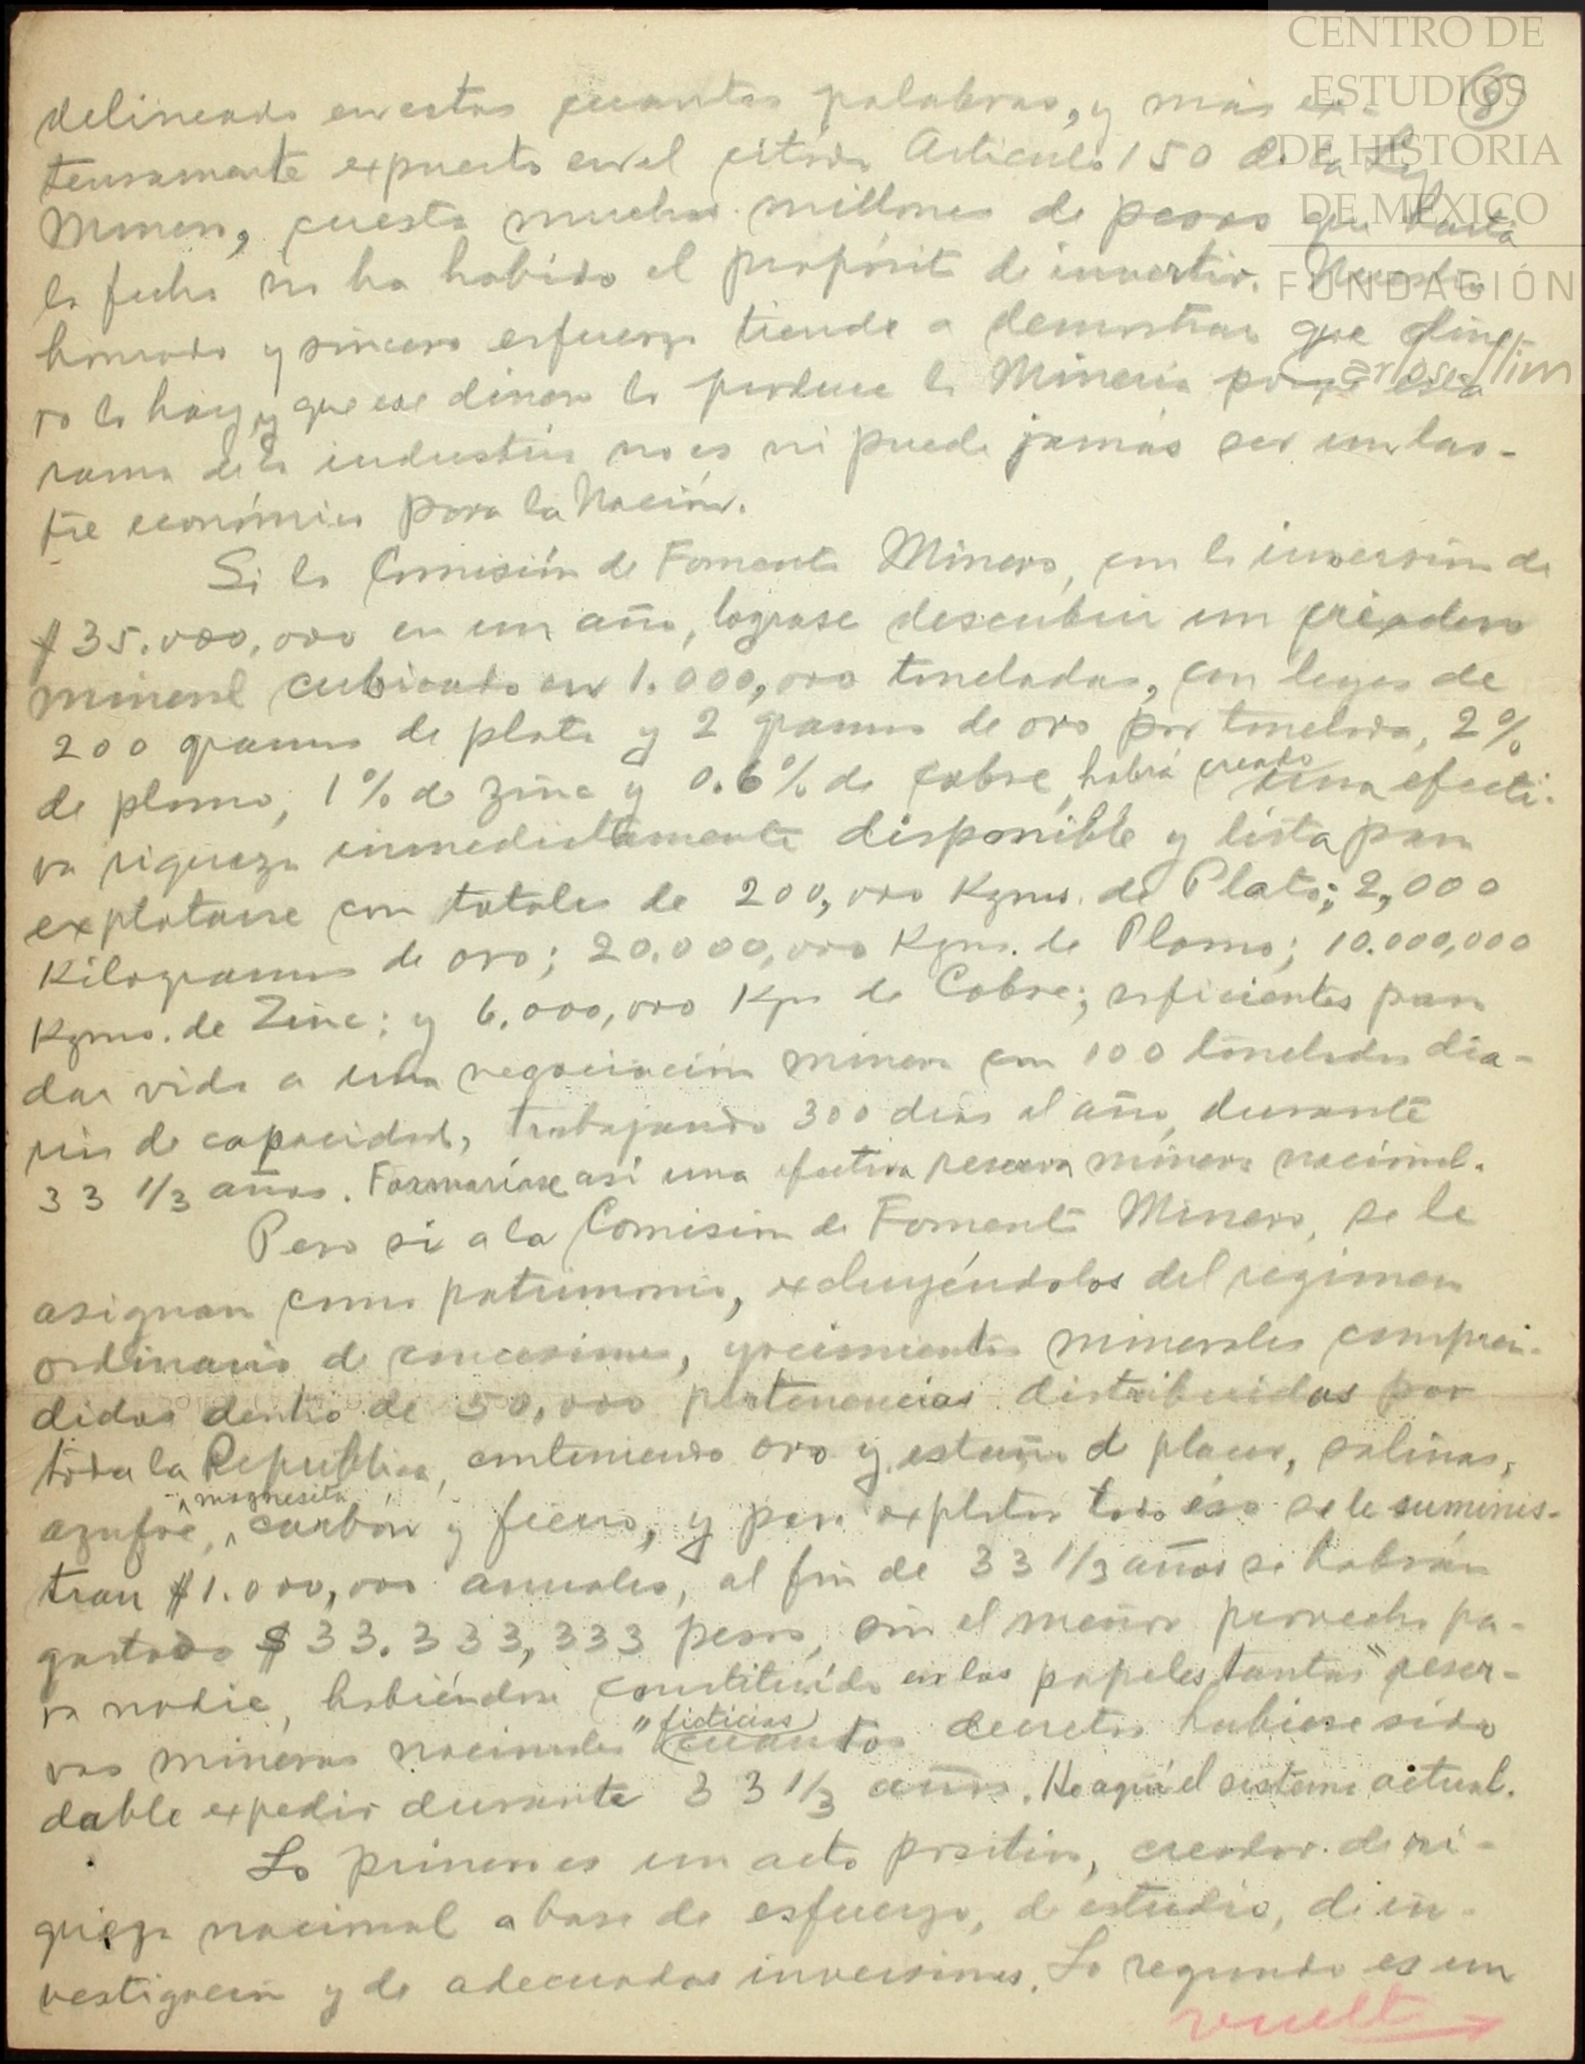 CENTRO DE
ESTUDIOS
DE HISTORIA
DE MÉXICO
FUNDACIÓN
Carlos Slim
8
delineado en estas cuantas palabras, y más ex-
tensamente expuesto en el citado Artículo 150 de la Ley
Minera, cuesta muchos millones de pesos que hasta
la fecha no ha habido el propósito de invertir. Nuestro
honrado y sincero esfuerzo tiende a demostrar que dine-
ro lo hay, y que ese dinero lo produce la Minería porque esta
rama de la industria no es ni puede jamás ser un las-
tre económico para la Nación.
Si la Comisión de Fomento Minero, con la inversión de
$35.000,000 en un año, lograse descubrir un criadero
mineral cubicado en 1.000,000 toneladas, con leyes de
200 gramos de plata y 2 gramos de oro por tonelada, 2%
de plomo, 1% de zinc y 0.6% de cobre, habrá creado una efecti-
va riqueza inmediatamente disponible y lista para
explotarse con totales de 200,000 Kgms. de Plata; 2,000
Kilogramos de oro; 20.000,000 Kgms. de Plomo; 10.000,000
Kgms. de Zinc; y 6.000,000 Kgs de Cobre; suficientes para
dar vida a una negociación minera con 100 toneladas dia-
rias de capacidad, trabajando 300 días al año, durante
33 1/3 años. Formaríase así una efectiva reserva minera nacional.
Pero si a la Comisión de Fomento Minero, se le
asignan como patrimonio, excluyéndolos del regimen
ordinario de concesiones, yacimientos minerales compren-
didos dentro de 50,000 pertenencias distribuidas por
toda la República, conteniendo oro y estaño de placer, salinas,
azufre, magnesita, carbón y fierro, y para explotar todo éso se le suminis-
tran $1.000,000 anuales, al fin de 33 1/3 años se habrán
gastado $33.333,333 pesos, sin el menor provecho pa-
ra nadie, habiéndose constituído en los papeles tantas "reser-
vas mineras nacionales" ficticias cuantos decretos hubiese sido
dable expedir durante 33 1/3 años. He aquí el sistema actual.
Lo primero es un acto positivo, creador de ri-
queza nacional a base de esfuerzo, de estudio, de in-
vestigación y de adecuadas inversiones. Lo segundo es un
vuelta